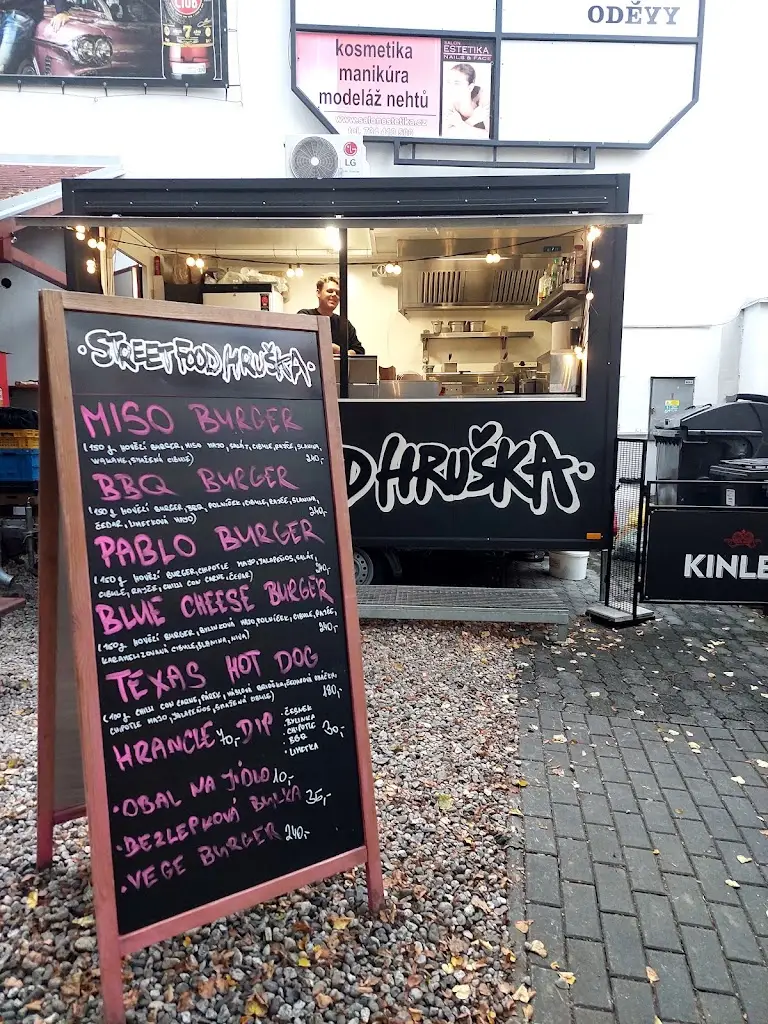 CLUB
7
ODĚVY
kosmetika
manikúra
modeláž nehtů
www.salonestetika.cz
SALON
ESTETIKA
NAILS & FACE
LG
·STREET FOOD HRUŠKA·
MISO BURGER
(150g HOVĚZÍ BURGER, MISO MAJO, SALÁT, CIBULE, RAJČE, SLANINA,
WAKAME, SMAŽENÁ CIBULE) 240,-
BBQ BURGER
(150g HOVĚZÍ BURGER, BBQ, POLNÍČEK, CIBULE, RAJČE, SLANINA,
ČEDAR, LIMETKOVÁ MAJO) 240,-
PABLO BURGER
(150g HOVĚZÍ BURGER, CHIPOTLE MAJO, JALAPEÑOS, SALÁT,
CIBULE, RAJČE, CHILLI CON CARNE, ČEDAR) 240,-
BLUE CHEESE BURGER
(150g HOVĚZÍ BURGER, BYLINKOVÁ MAJO, POLNÍČEK, CIBULE, RAJČE,
KARAMELIZOVANÁ CIBULE, SLANINA, NIVA) 240,-
TEXAS HOT DOG
(100g CHILLI CON CARNE, PÁREK, MÁSLOVÁ BRIOŠKA,
CHIPOTLE MAJO, JALAPEÑOS, SMAŽENÁ CIBULE) 180,-
HRANOLE 70,- DIP 30,-
· ČESNEK
· BYLINKA
· CHIPOTLE
· BBQ
· LIMETKA
· OBAL NA JÍDLO 10,-
· BEZLEPKOVÁ BULKA 35,-
· VEGE BURGER 240,-
D HRUŠKA·
KINLE